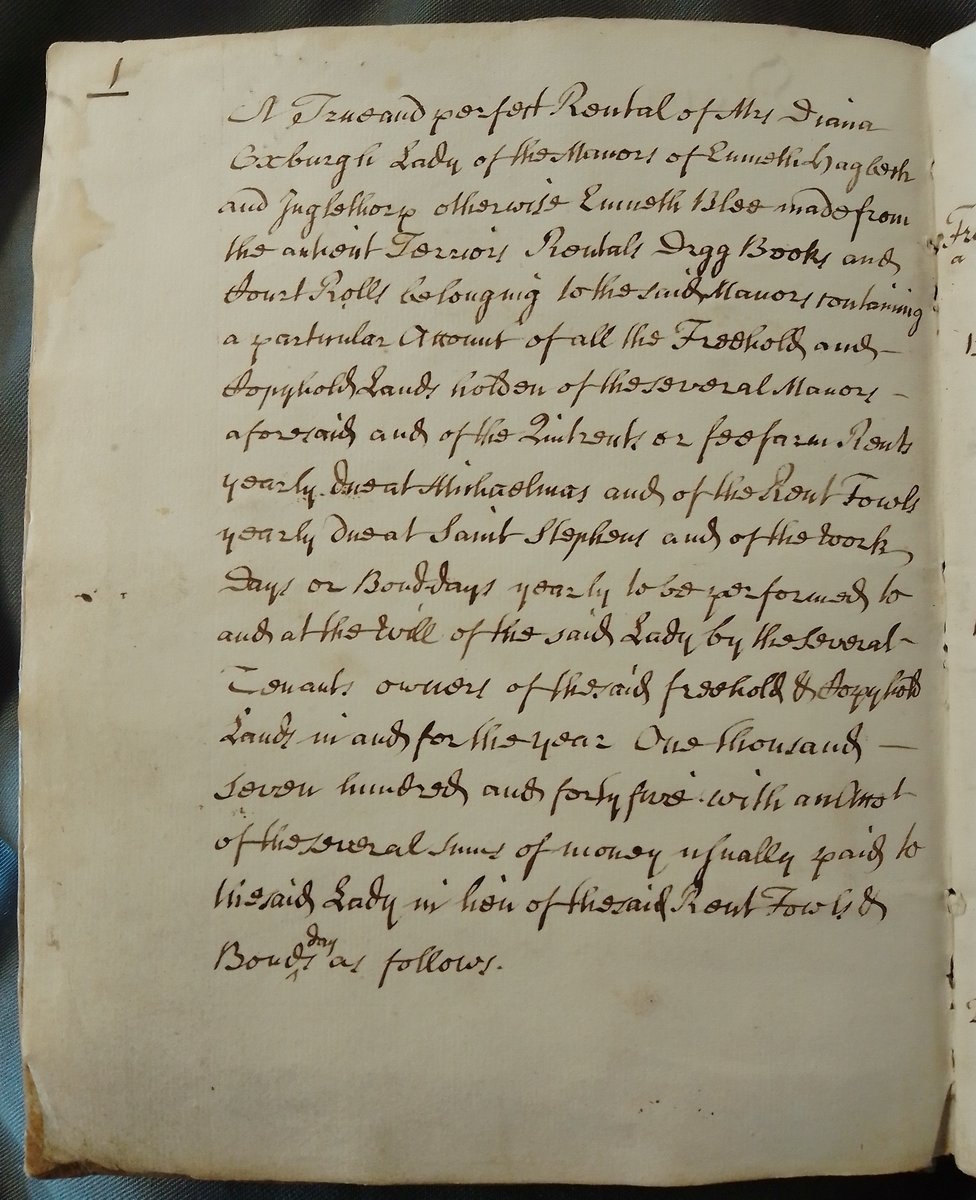 1
A True and perfect Rental of Mrs Diana
Oxburgh Lady of the Manors of Emneth Hagbech
and Inglethorp otherwise Emneth Blee made from
the antient Terriors Rentals Dragg Books and
Court Rolls belonging to the said Manors containing
a particular Account of all the Freehold and
Copyhold Lands holden of the several Manors
aforesaid and of the Quitrents or fee farm Rents
yearly due at Michaelmas and of the Rent Fowls
yearly due at Saint Stephens and of the work
Days or Bond-days yearly to be performed to
and at the Will of the said Lady by the several
Tenants owners of the said freehold & Copyhold
Lands in and for the year One thousand
seven hundred and forty five with an Acco.t
of the several sums of money usually paid to
the said Lady in lieu of the said Rent Fowls &
Bond^days as follows.
Fr
a